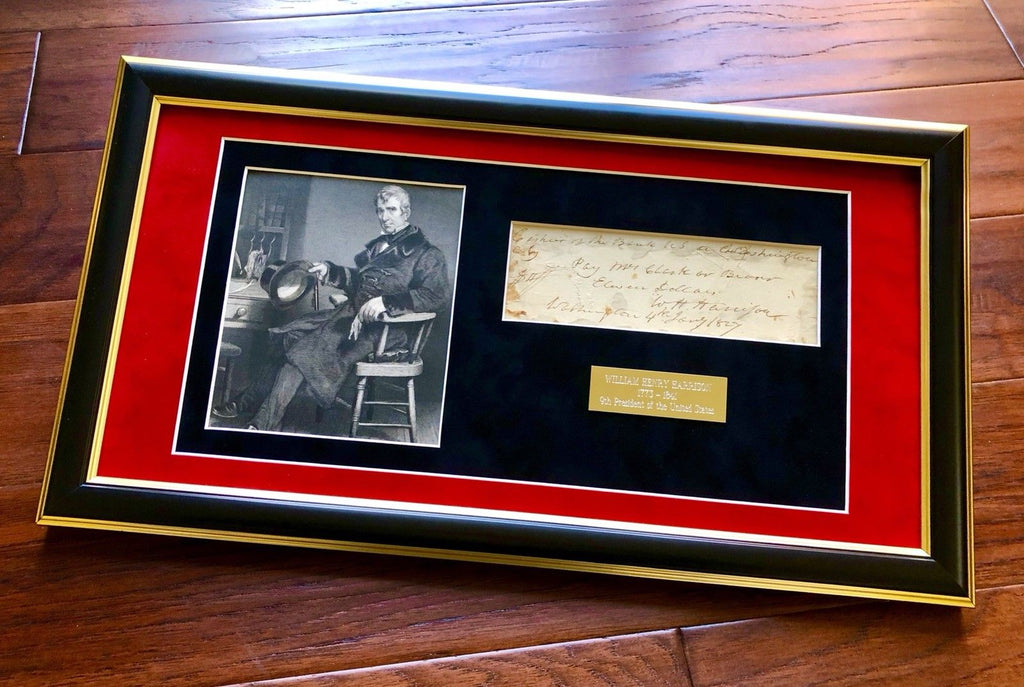 Cashier of the Bank U.S. at Washington
Pay Mr Clark or Bearer
Eleven Dollars
W H Harrison
Washington 4th Jany 1827
WILLIAM HENRY HARRISON
1773 - 1841
9th President of the United States